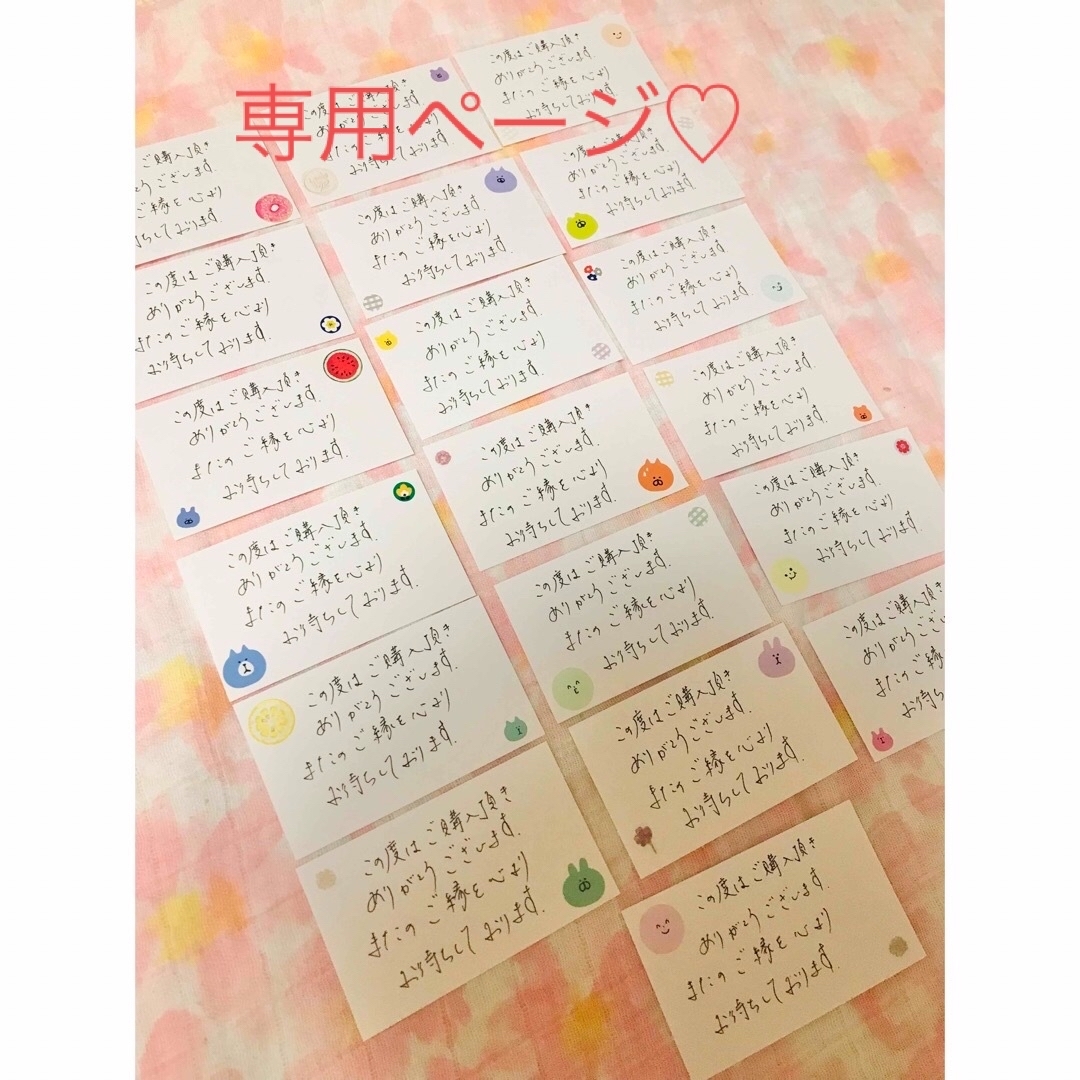 専用ページ♡
この度はご購入頂き
ありがとうございます
またのご縁を心より
お待ちしております
ご購入頂き
とうございます
ご縁を心より
待ちしております
お待ちしております
この度はご購入頂き
ありがとうございます
またのご縁を心より
お待ちしております
この度はご購入頂き
ありがとうございます
またのご縁を心より
お待ちしております
この度はご購入頂き
ありがとうございます
またのご縁を心より
お待ちしております
この度はご購入頂き
ありがとうございます。
またのご縁を心より
お待ちしております。
この度はご購入頂き
ありがとうございます
またのご縁を心より
お待ちしております
この度はご購入頂き
ありがとうございます。
またのご縁を心より
お待ちしております。
この度はご購入頂き
ありがとうございます。
またのご縁を心より
お待ちしております。
この度はご購入頂き
ありがとうございます。
またのご縁を心より
お待ちしております。
この度はご購入頂き
ありがとうございます。
またのご縁を心より
お待ちしております。
この度はご購入頂き
ありがとうございます。
またのご縁を心より
お待ちしております。
この度はご購入頂き
ありがとうございます。
またのご縁を心より
お待ちしております。
この度はご購入頂き
ありがとうございます。
またのご縁を心より
お待ちしております。
この度はご購入
ありがとうござい
またのご縁
お待ちして
この度はご購入頂き
ありがとうございます。
またのご縁を心より
お待ちしております。
この度はご購入頂き
ありがとうございます。
またのご縁を心より
お待ちしております。
この度はご購入頂
ありがとうございます。
またのご縁を心より
お待ちしております。